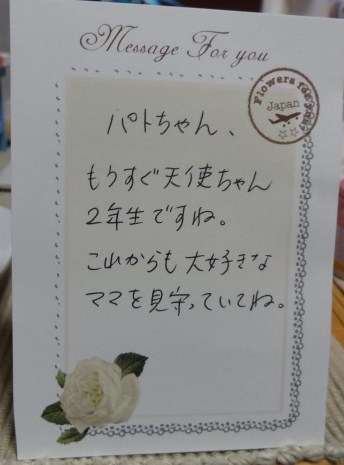 Message For you
Flowers for you!
Japan
パトちゃん、
もうすぐ天使ちゃん
2年生ですね。
これからも大好きな
ママを見守っていてね。